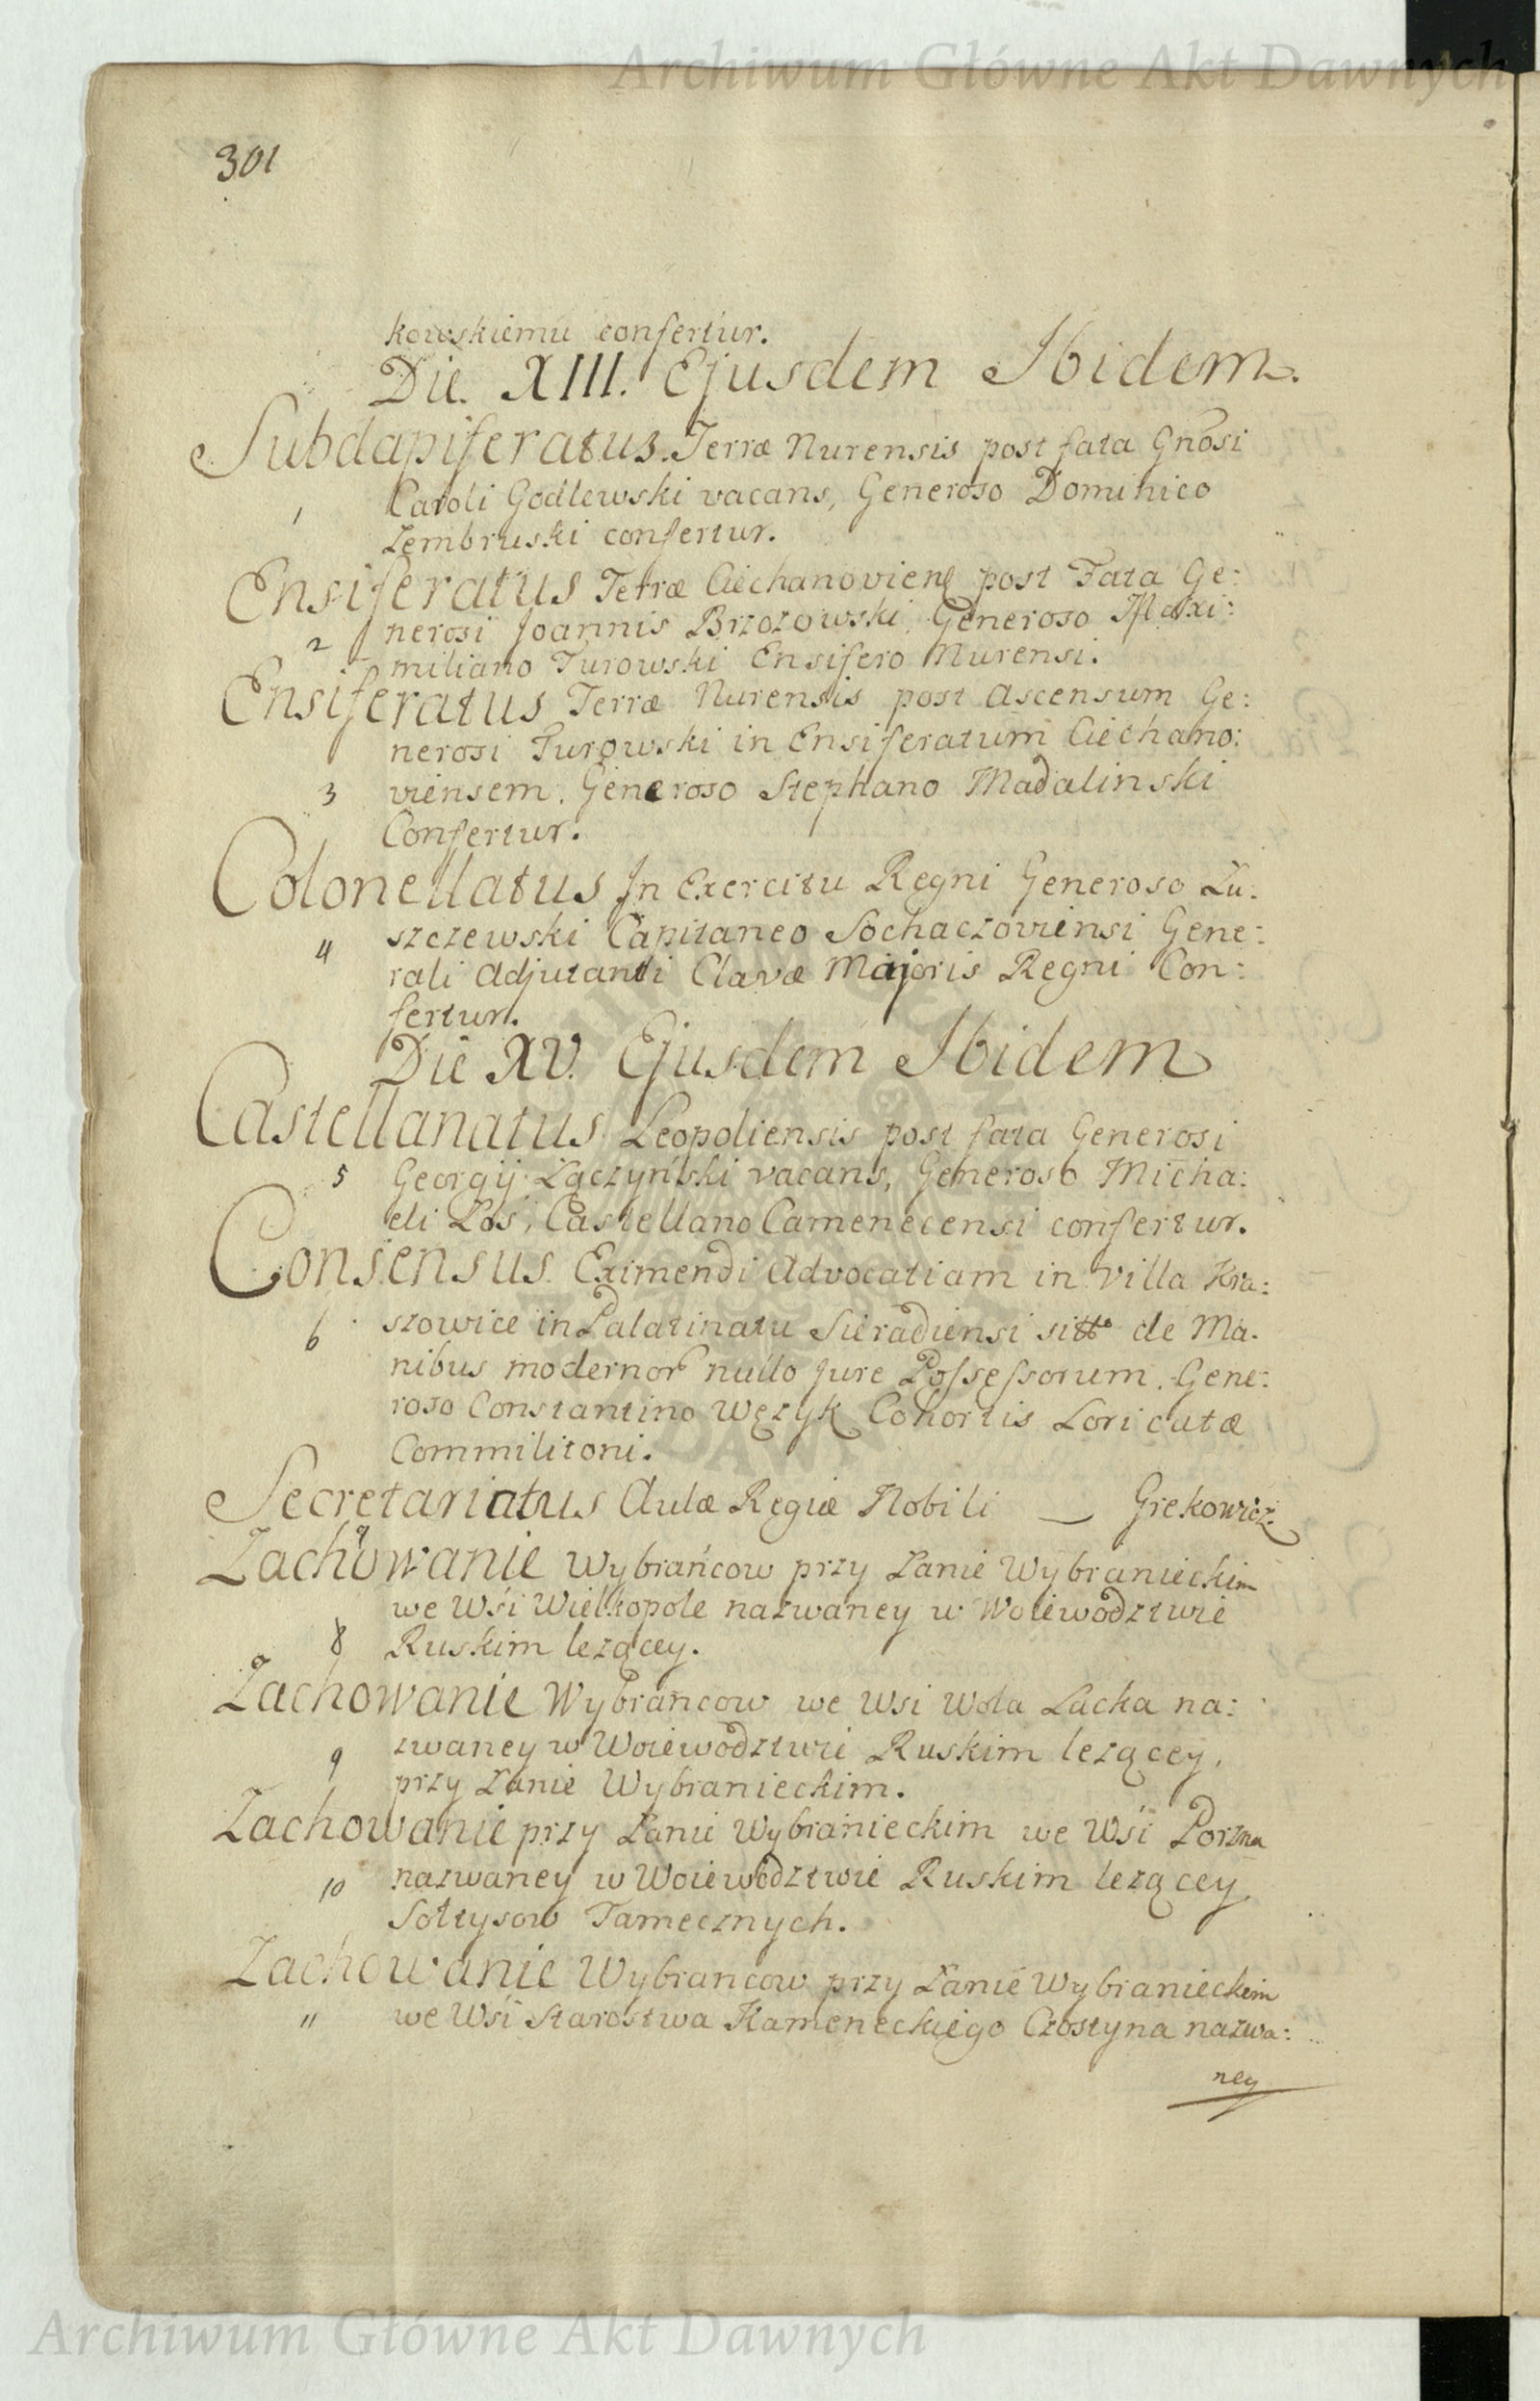 Archiwum Główne Akt Dawnych
301
kowskiemu confertur.
Die XIII. Ejusdem Ibidem.
Subdapiferatus Terræ Nurensis post fata Gnosi
1 Caroli Godlewski vacans, Generoso Dominico
Zembruski confertur.
Ensiferatus Terræ Ciechanovienę post Fata Ge:
2 nerosi Joannis Brzozowski, Generoso Maxi:
miliano Turowski Ensifero Nurensi.
Ensiferatus Terræ Nurensis post ascensum Ge:
nerosi Turowski in Ensiferatum Ciechano:
3 viensem, Generoso Stephano Madalinski
Confertur.
Colonellatus In Exercitu Regni Generoso Łu:
4 szczewski Capitaneo Sochaczoviensi Gene:
rali Adjutanti Clavæ Majoris Regni Con:
fertur.
Die XV. Ejusdem Ibidem
Castellanatus Leopoliensis post fata Generosi
5 Georgij Łączyński vacans, Generoso Micha:
eli Łos, Castellano Camenecensi confertur.
Consensus Eximendi Advocatiam in villa Kra:
6 szowice in Palatinatu Sieradiensi de Ma:
nibus modernor nullo jure Possessorum, Gene:
roso Constantino Wężyk Cohortis Loricatæ
Commilitoni.
Secretariatus Aulæ Regiæ Nobili — Grekowicz.
7
Zachowanie Wybrańcow przy Łanie Wybranieckim
we Wsi Wielkopole nazwaney w Woiewodztwie
8 Ruskim lezącey.
Zachowanie Wybrańcow we Wsi Wola Lacka na:
9 zwaney w Woiewodztwie Ruskim lezącey,
przy Łanie Wybranieckim.
Zachowanie przy Łanie Wybranieckim we Wsi Porzna
10 nazwaney w Woiewodztwie Ruskim lezącey
Sołtysow Tamecznych.
Zachowanie Wybrancow przy Łanie Wybranieckim
11 we Wsi Starostwa Kameneckiego Czostyna nazwa:
ney
Archiwum Główne Akt Dawnych